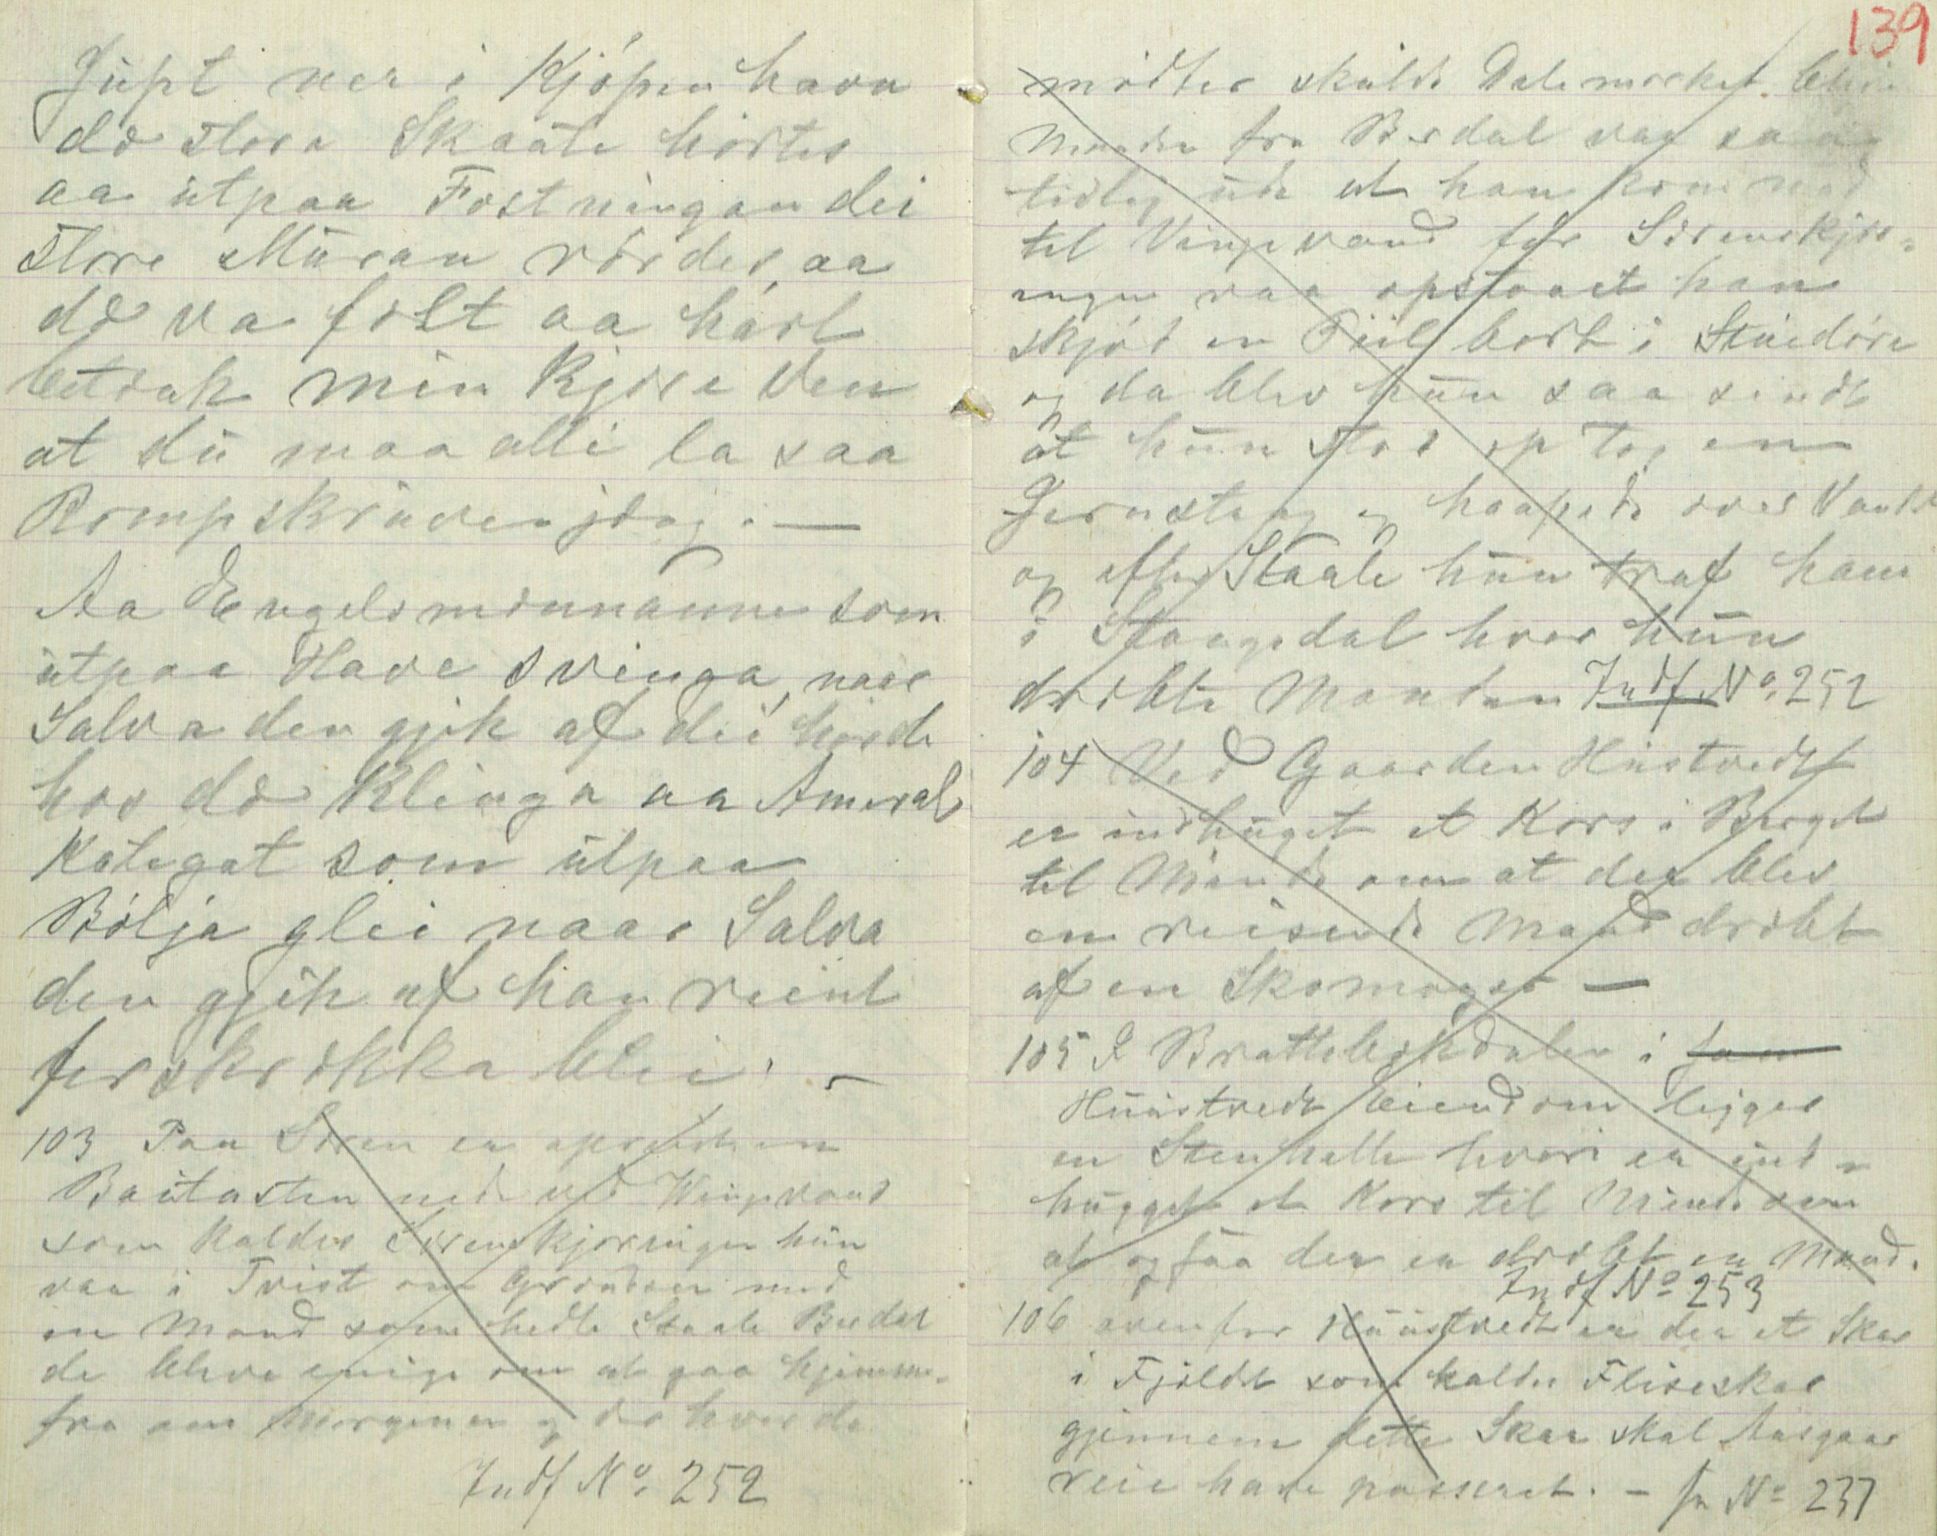 Jupt ner i Kjøpenhavn
dæ stora Skaate hørtes
aa utpaa Festningan dei
store Muran rørdes, aa
dæ va felt aa hart
betænk min kjære Ven
at du maa alli la saa
Rompskruven idag. —
Aa Engelsmænnanne som
utpaa Have svinga, naar
Salva den gjik af dei hørde
hor dæ klinga aa Ameral
Kategat som utpaa
Bølja glei naar Salva
den gjik af han reint
forskrækka blei. —
103 Paa Søren er opreist en
Bautasten nede ved Vinjevand
som kaldes Sørenskjæringen hun
var i Trist om Grændsen med
en Mand som hedte Staale Berdal
de bleve enige om at gaa hjemme-
fra om Morgenen og der hvor de
Indf No. 252
139
mødtes skulde Delemærket blive
Manden fra Berdal var saa
tidlig ude at han kom ned
til Vinjevand før Sørenskjær=
ingen var opstaaet han
skjød en Piil bort i Stuedøra
og da blev hun saa sindt
at hun stod op tog en
Jernstang og haapede over Vandet
og efter Staale hun traf ham
i Staagedal hvor hun
dræbte Manden Indf No. 252
104 Ved Gaarden Hustvedt
er indhuget et Kors i Berget
til Minde om at der blev
en reisende Mand dræbt
af en Skomager —
105 I Brattebækdalen i
Huustvedt eiendom ligger
en Stenhelle hvori er ind=
hugget et Kors til Minde om
at ogsaa der er dræbt en Mand.
Indf No 253
106 ovenfor Huustvedt er der et Skar
i Fjeldet som kaldes Fliseskar
gjennem dette Skar skal Aasgaar
reie have passeret. — fr No 237